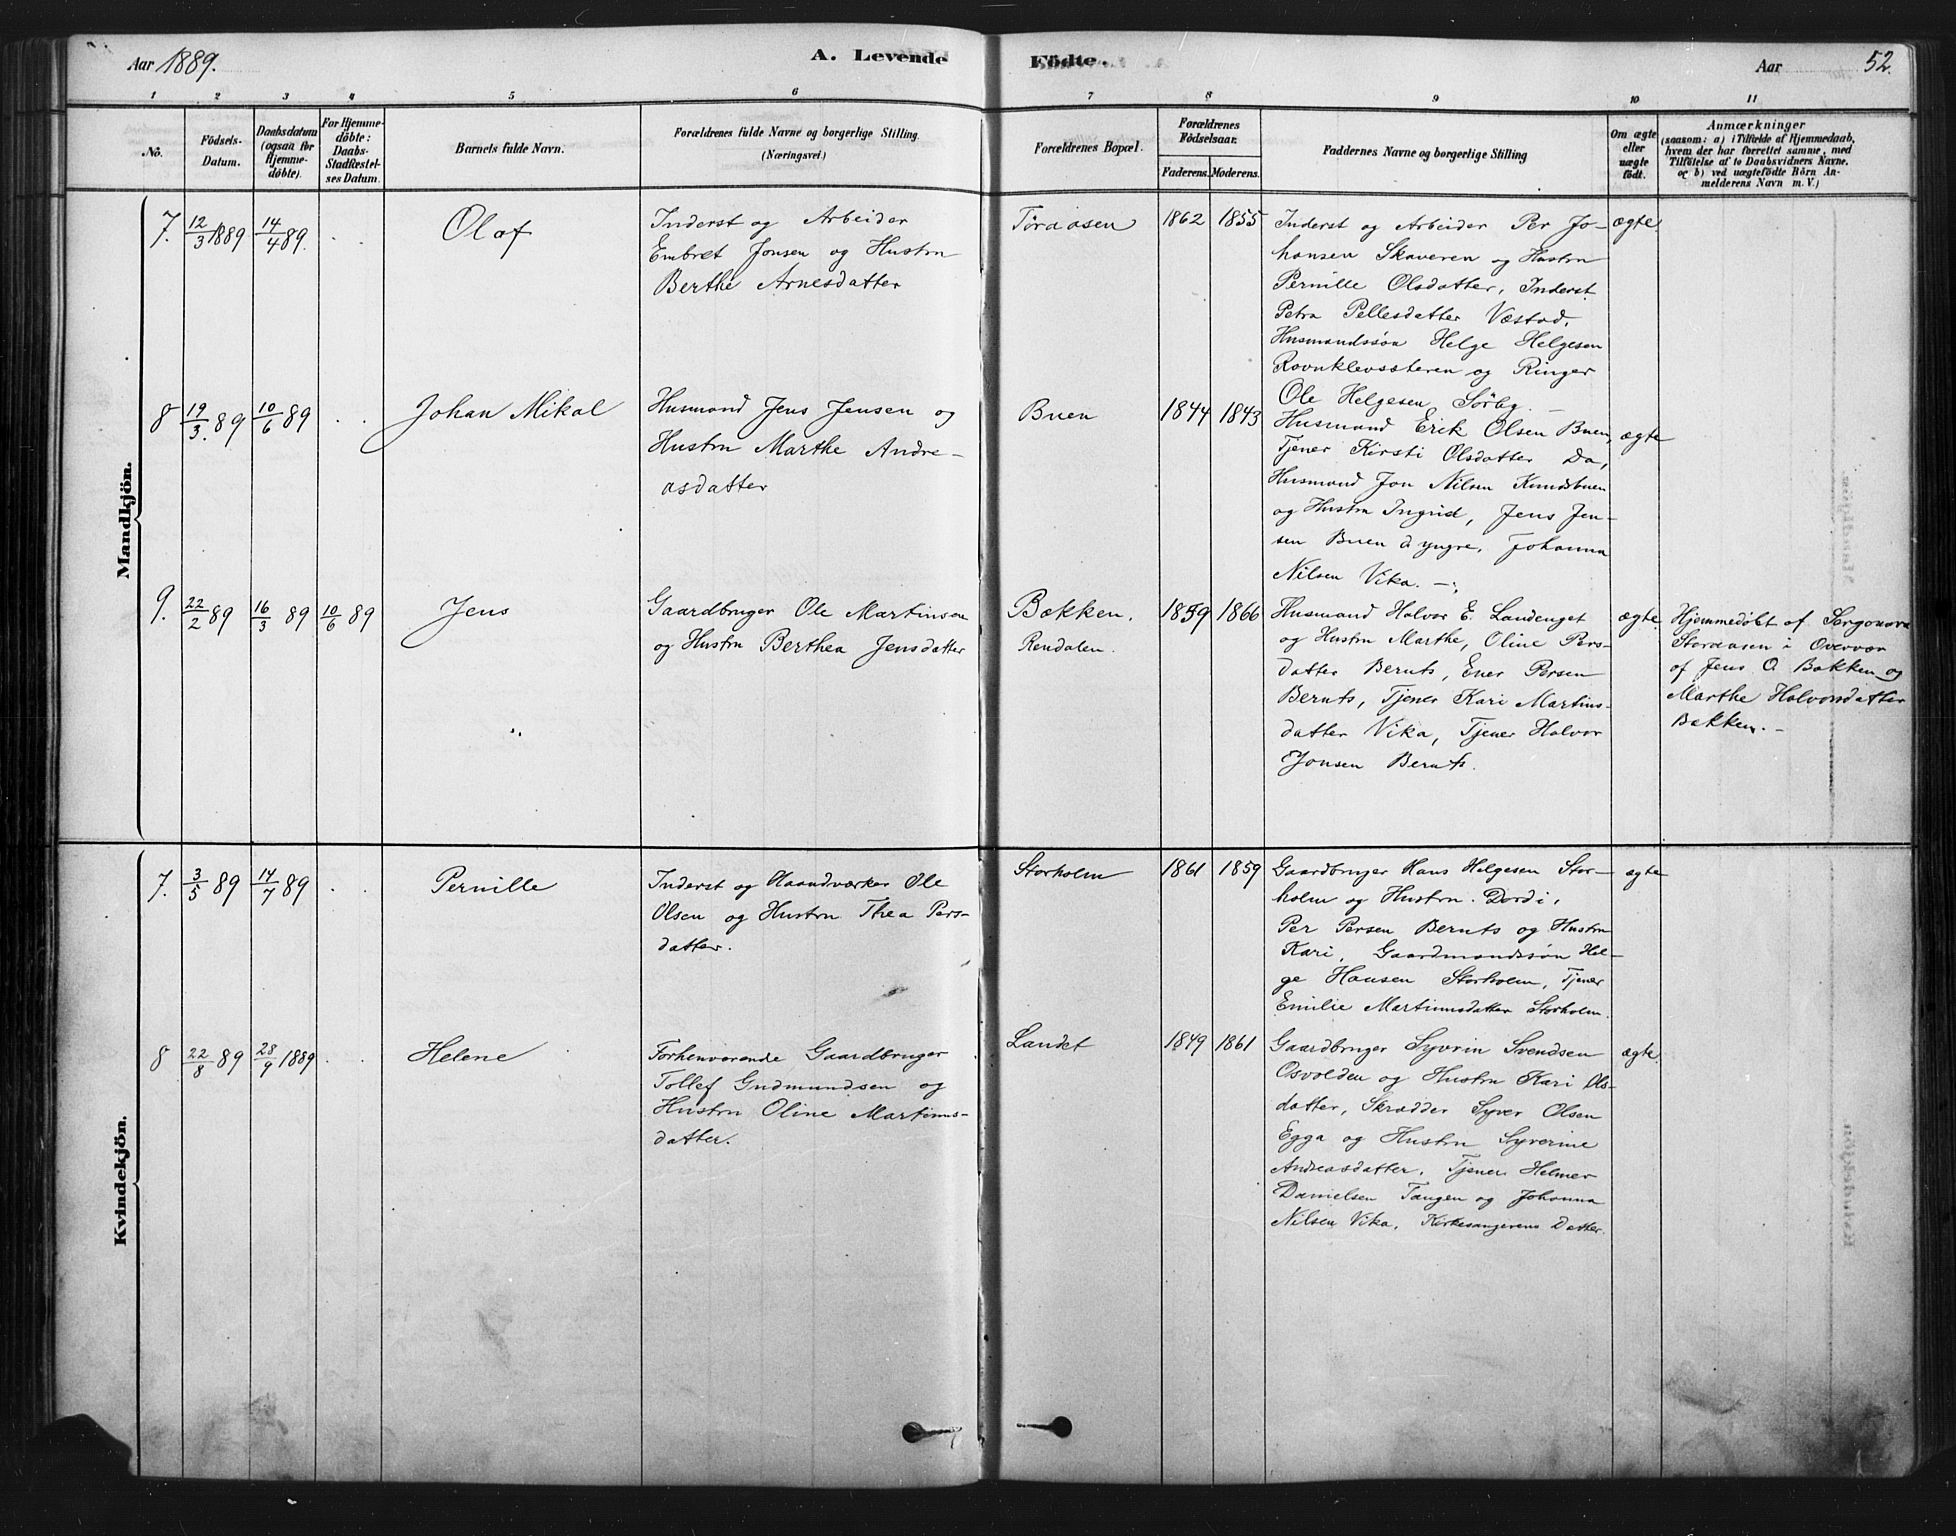 Aar 1889.
A. Levende
Födte.
Aar
52.
1 2 3 4 5 6 7 8 9 10 11
No.
Födsels-
Datum.
Daabsdatum
(ogsaa for
Hjemme-
döbte).
For Hjemme-
döbte:
Daabs-
Stadfæstel-
ses Datum.
Barnets fulde Navn.
Forældrenes fulde Navne og borgerlige Stilling.
(Næringsvei.)
Forældrenes Bopæl.
Forældrenes
Födselsaar.
Faderens. Moderens.
Faddernes Navne og borgerlige Stilling
Om ægte
eller
uægte
födt.
Anmærkninger
(saasom: a) i Tilfælde af Hjemmedaab,
hvem der har forrettet samme, med
Tilföielse af to Daabsvidners Navne.
og b) ved uægtefödte Börn An-
melderens Navn m. V.)
Mandkjön.
7. 12/3 1889 14/4 89.
Olaf
Inderst og Arbeider
Embret Jonsen og Hustru
Berthe Arnesdatter
Toraasen
1862 1855
Inderst og Arbeider Per Jo-
hansen Skaveren og Hustru
Pernille Olsdatter, Inderst
Petra Pellesdatter Væstad,
Husmandssön Helge Helgesen
og Ringer
Ole Helgesen Sörby. —
ægte.
8 19/3. 89 10/6 89
Johan Mikal
Husmand Jens Jensen og
Hustru Marthe Andre-
asdatter
Buen
1844 1843
Husmand Erik Olsen Buen,
Tjener Kirsti Olsdatter Do,
Husmand Jon Nilsen Knudsbuen
og Hustru Ingrid, Jens Jen-
sen Buen d yngre, Johanna
Nilsen Vika. —
ægte
9. 22/2 89 16/3 89 10/6 89
Jens
Gaardbruger Ole Martinsen
og Hustru Berthea Jensdatter
Bækken.
Rendalen.
1859 1866
Husmand Halvor E. Landenget
og Hustru Marthe, Oline Pers-
datter Beruts, Ener Persen
Beruts, Tjener Kari Martins-
datter Vika, Tjener Halvor
Jonsen Beruts.
ægte.
Hjemmedöbt af
Storaasen i Overvær
af Jens O. Bakken og
Marthe Halvorsdatter
Bakken. —
Kvindekjön.
7. 3/5 89 14/7 89
Pernille
Inderst og Haandværker Ole
Olsen og Hustru Thea Pers-
datter.
Storholm
1861 1859
Gaardbruger Hans Helgesen Stor-
holm og Hustru Dordi,
Per Persen Beruts og Hustru
Kari, Gaardmandssön Hel-
ge Hansen Storholm, Tjener
Emilie Martinusdatter Storholm.
ægte
8 22/8 89 28/9 1889
Helene
Forhenværende Gaardbruger
Tollef Gudmundsen og
Hustru Oline Martinus-
datter.
Landet
1849 1861
Gaardbruger Syvrin Svendsen
Osvolden og Hustru Kari Ols-
datter, Skrædder Syver Olsen
Egga og Hustru Syverine
Andreasdatter, Tjener Helmer
Danielsen Tangen og Johanna
Nilsen Vika, Kirkesangerens Datter.
ægte.